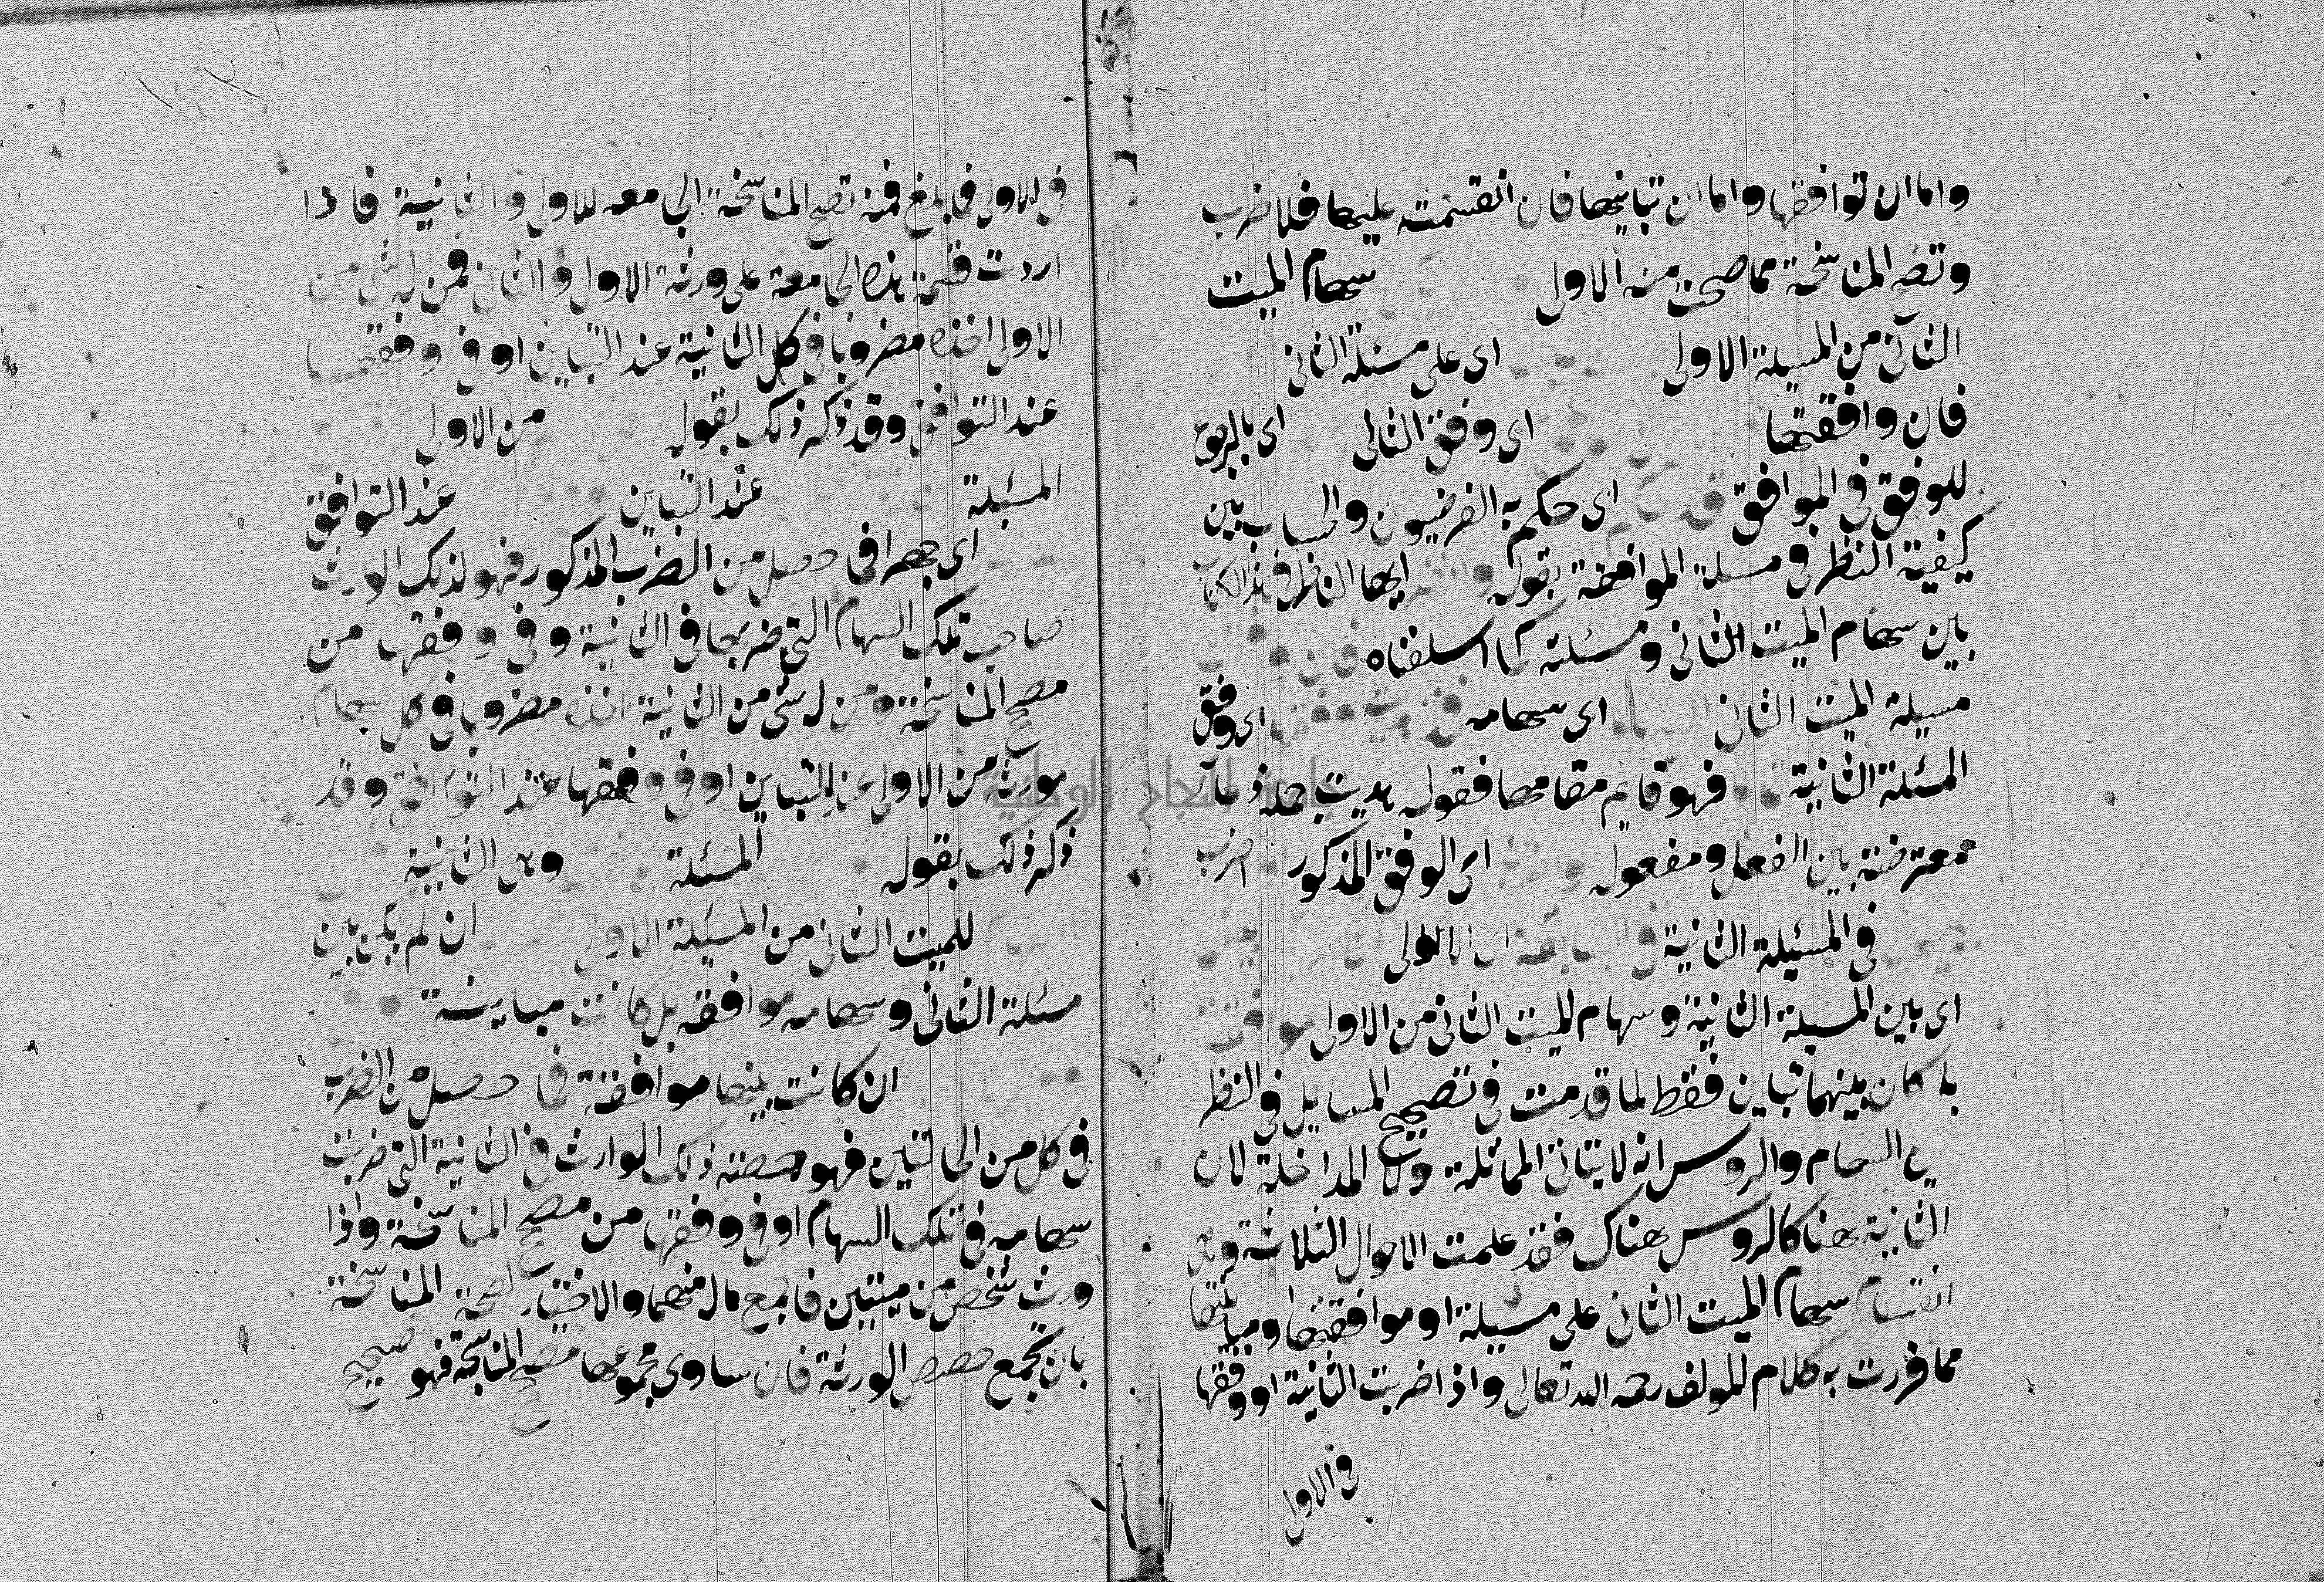 واما ان توافقها واما ان تباينها فان انقسمت عليها فلا ضرب
وتصح المناسخة مما صحت منه الاولى سهام الميت
الثاني من المسيلة الاولى اى على مسئلة الثانى
فان وافقتها اى وفق الثانى اى بالرجوع
للوفق في الموافق قد اى حكم به الفرضيون والحساب بين
كيفية النظر في مسيلة الموافقة بقوله وانظر ايها الناظر في هذا الكتاب
بين سهام الميت الثانى ومسئلته كما اسلفناه فان وافقت
مسيلة الميت الثانى السهام اى سهامه فخذ هديت وفقها اى وفق
المسئلة الثانية فهو قايم مقامها فقوله هديت جملة دعائية
معترضة بين الفعل ومفعوله واضربه اى الوفق المذكور او اضرب
في المسئيلة الثانية في السابقة اى الاولى ان لم يكن بينهن
اى بين المسيلة الثانية وسهام الميت الثانى من الاولى موافقة
با كان بينهما تباين فقط لما قدمت في تصحيح المسايل في النظر
بين السهام والروس انه لا يتاتى المماثلة ولا المداخلة لان
الثانية هنا كالروس هناك فقد علمت الاحوال الثلاثة وهى
انقسام سهام الميت الثانى على مسيلة او موافقتها ومباينتها
مما قررت به كلام المولف رحمه الله تعالى واذا ضربت الثانية او وفقها
في الاولى
في الاولى فما بلغ فمنه تصح المناسخة الجامعه للاولى والثانية فاذا
اردت قسمة هذه الجامعة على ورثة الاول والثانى فمن له شى من
الاولى اخذه مضروبا في كل الثانية عند التباين او في وفقها
عند التوافق وقد ذكر ذلك بقوله من الاولى
المسئلة عند التباين عند التوافق
اى جهرا فما حصل من الضرب المذكور فهو لذلك الوارث
صاحب تلك السهام التى ضربها في الثانية وفي وفقها من
مصح المناسخة ومن له شى من الثانية اخذه مضروبا في كل سهام
مورثه من الاولى عند التباين او في وفقها عند التوافق وقد
ذكر ذلك بقوله المسئلة وهى الثانية
للميت الثانى من المسئلة الاولى ان لم يكن بين
مسئلة الثانى وسهامه موافقة بل كانت مباينة
ان كانت بينها موافقة فما حصل من الضرب
في كل من الحالتين فهو حصته ذلك الوارث في الثانية التى ضربت
سهامه في تلك السهام او في وفقها من مصح المناسخة واذا
ورث شخص من ميتين فاجمع ماله منهما والاختبار لصحة المناسخة
بان تجمع حصص الورثة فان ساوى مجموعها مصح المناسخة فهو صحيح
جامعة النجاح الوطنية